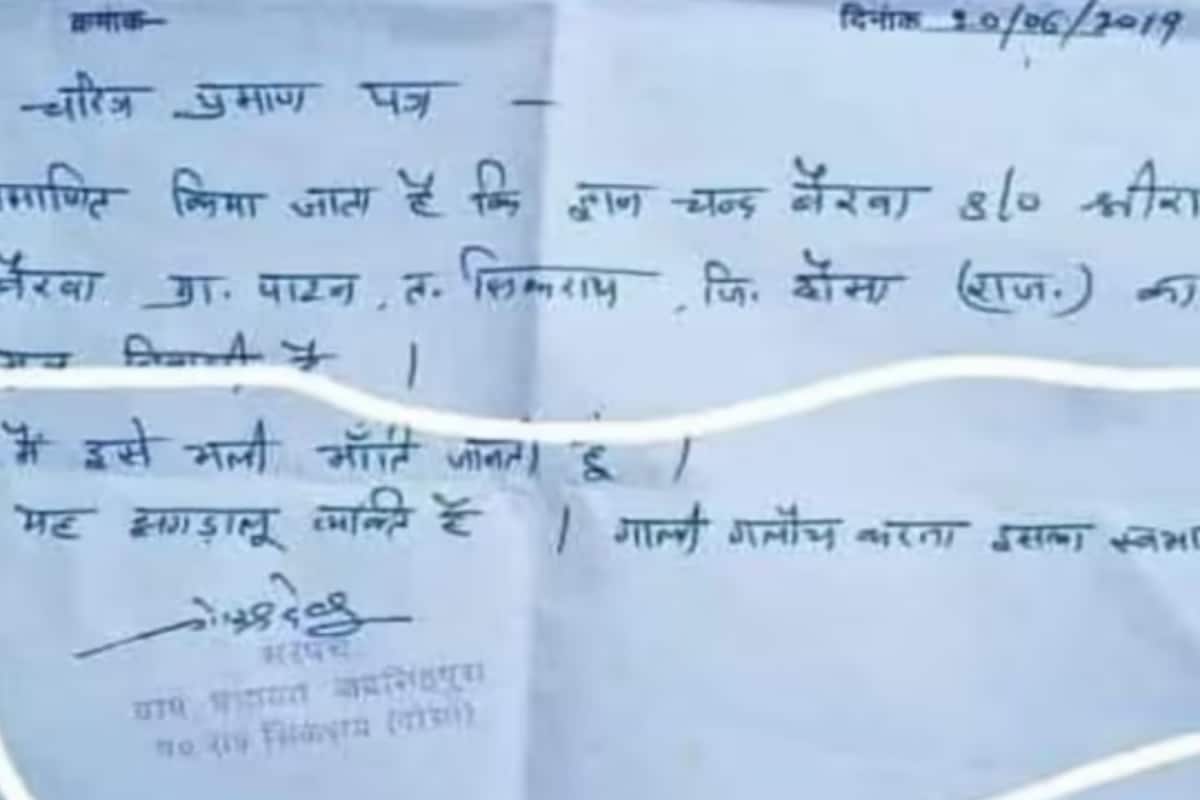 क्रमांक- दिनांक 10/06/2019
चरित्र प्रमाण पत्र -
माणित किया जाता है कि ज्ञान चन्द बैरवा S/o श्रीरा
बैरवा ग्रा. पाटन, त. सिकराय, जि. दौसा (राज.) का
निवासी है ।
मैं इसे भली भाँति जानती हूं ।
यह झगड़ालू व्यक्ति है । गाली गलौच करना इसका स्वभा
सरपंच
ग्राम पंचायत जयसिंहपुरा
पं० स० सिकराय (दौसा)